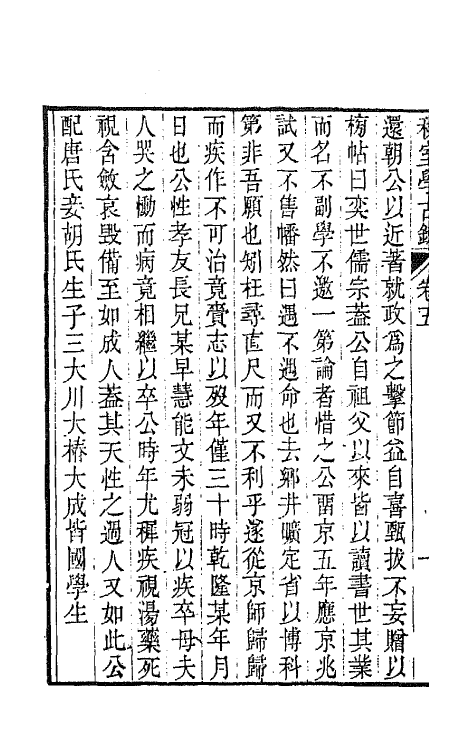 學古錄 卷五
還朝公以近著就政爲之擊節益自喜甄拔不妄贈以
榜帖曰奕世儒宗蓋公自祖父以來皆以讀書世其業
而名不副學不邀一第論者惜之公畱京五年應京兆
試又不售幡然曰遇不遇命也去鄉井曠定省以博科
第非吾願也矧枉尋直尺而又不利乎遂從京師歸歸
而疾作不可治竟賫志以歿年僅三十時乾隆某年月
日也公性孝友長兄某早慧能文未弱冠以疾卒母夫
人哭之慟而病竟相繼以卒公時年尤穉疾視湯藥死
視含斂哀毀備至如成人蓋其天性之過人又如此公
配唐氏妾胡氏生子三大川大椿大成皆國學生